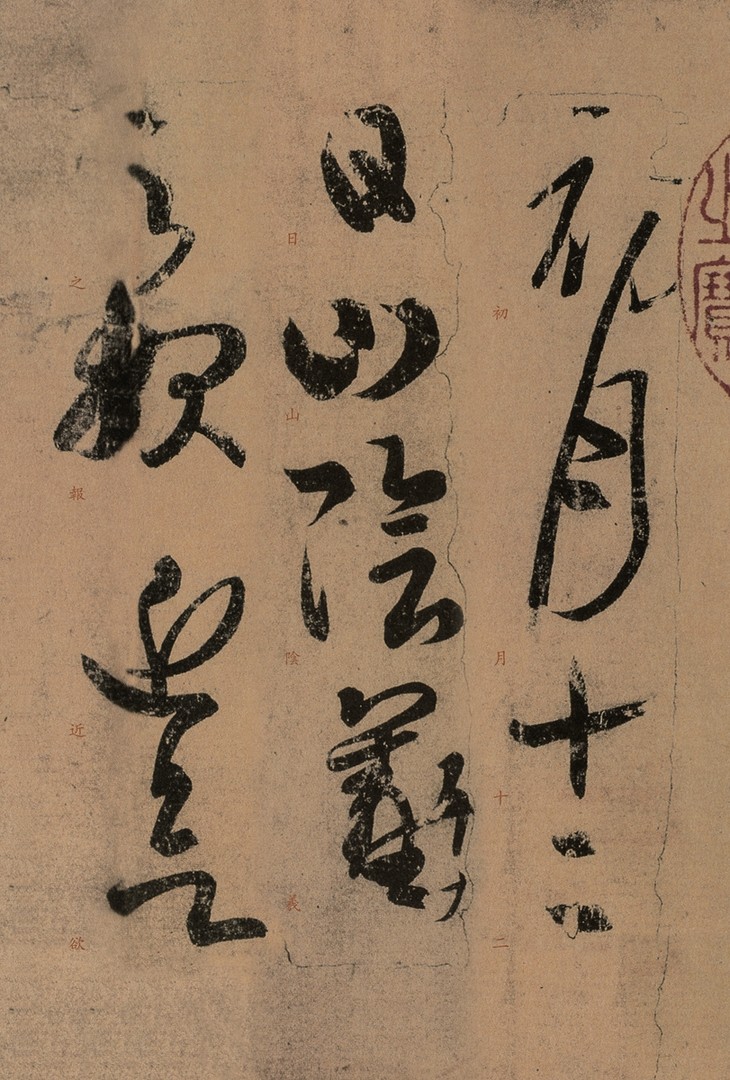 寶
初月十二
初月十二
日山陰羲
日山陰羲
之報近欲
之報近欲